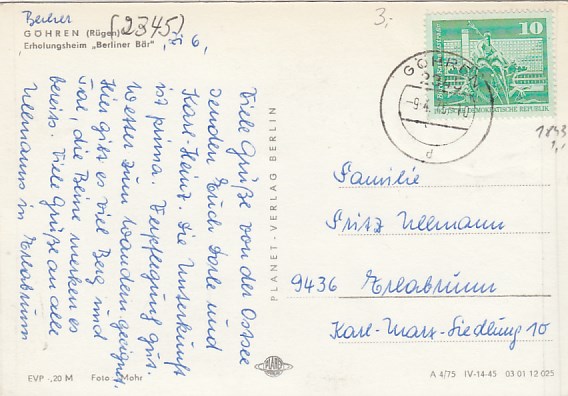 Berliner
GÖHREN (Rügen) (2345)
Erholungsheim „Berliner Bär"
Viele Grüße von der Ostsee
senden Euch Dorle und
Karl-Heinz. Die Unterkunft
ist prima. Verpflegung gut.
Wetter zum Wandern geeignet.
Hier gibt es viel Berg und
Tal, die Beine merken es
bereits. Viele Grüße an alle
Ullmanns in Erlabrunn
PLANET-VERLAG BERLIN
3,-
10
DEUTSCHE DEMOKRATISCHE REPUBLIK
GÖHREN
1843
1,-
Familie
Fritz Ullmann
9436 Erlabrunn
Karl-Marx-Siedlung 10
PLANET
EVP -,20 M Foto Mohr
A 4/75 IV-14-45 03 01 12 025